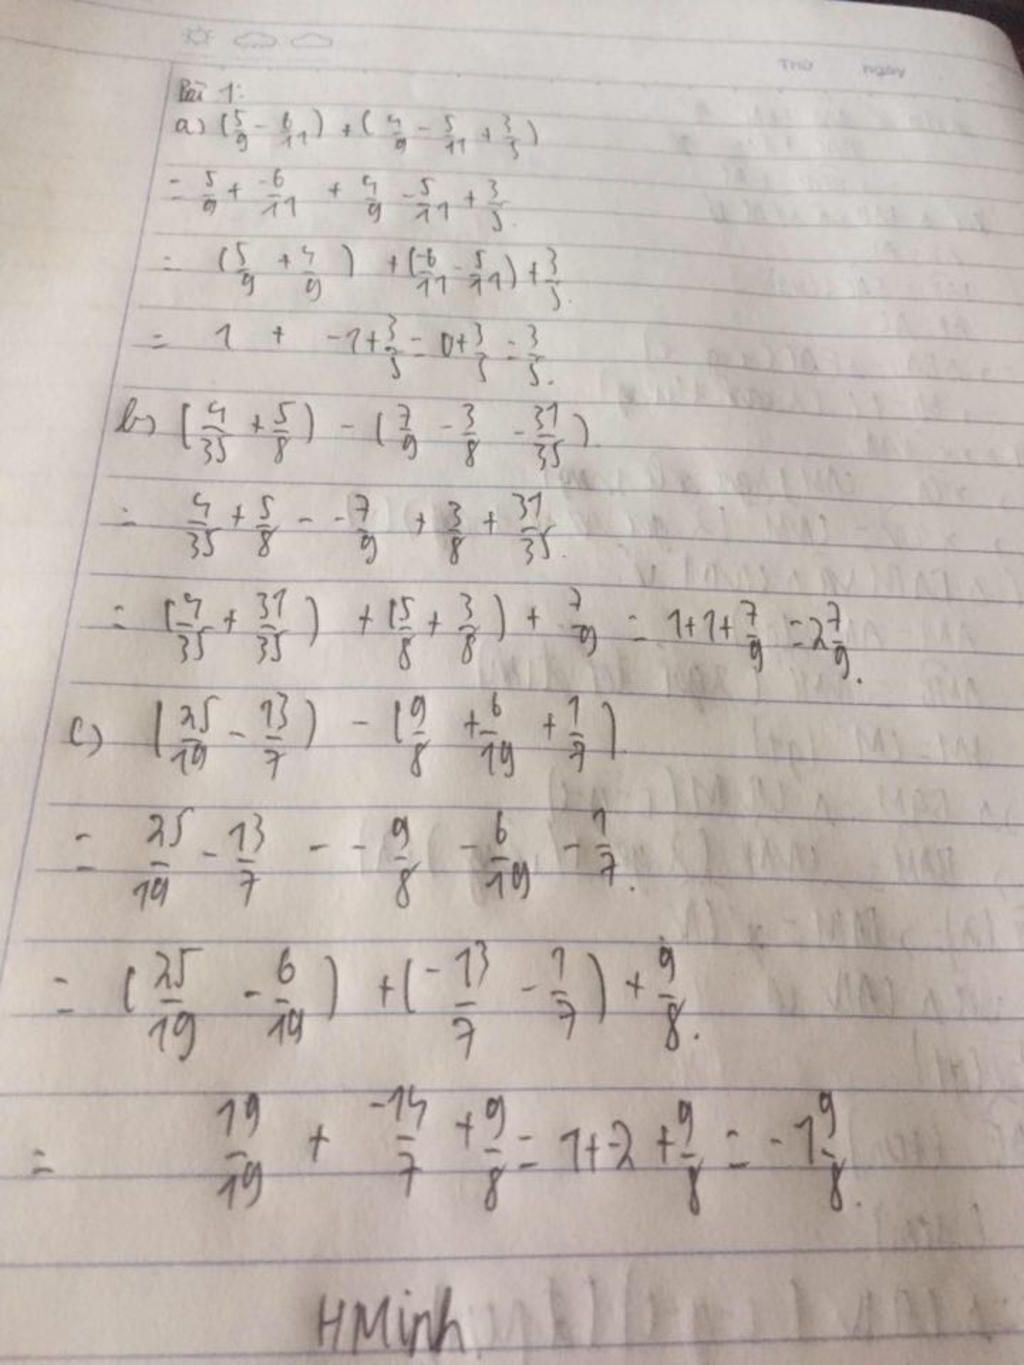 THỨ NGÀY
Bài 1:
a) (5/9 - 6/11) + (4/9 - 5/11 + 3/5)
= 5/9 + -6/11 + 4/9 - 5/11 + 3/5.
= (5/9 + 4/9) + (-6/11 - 5/11) + 3/5.
= 1 + -1 + 3/5 = 0 + 3/5 = 3/5.
b) (4/35 + 5/8) - (7/9 - 3/8 - 31/35).
= 4/35 + 5/8 - - 7/9 + 3/8 + 31/35.
= (4/35 + 31/35) + (5/8 + 3/8) + 7/9 = 1+1+7/9 = 2 7/9.
c) (25/19 - 13/7) - (9/8 + 6/19 + 1/7).
= 25/19 - 13/7 - - 9/8 - 6/19 - 1/7.
= (25/19 - 6/19) + (-13/7 - 1/7) + 9/8.
= 19/19 + -14/7 + 9/8 = 1+-2 + 9/8 = -1 9/8.
HMinh